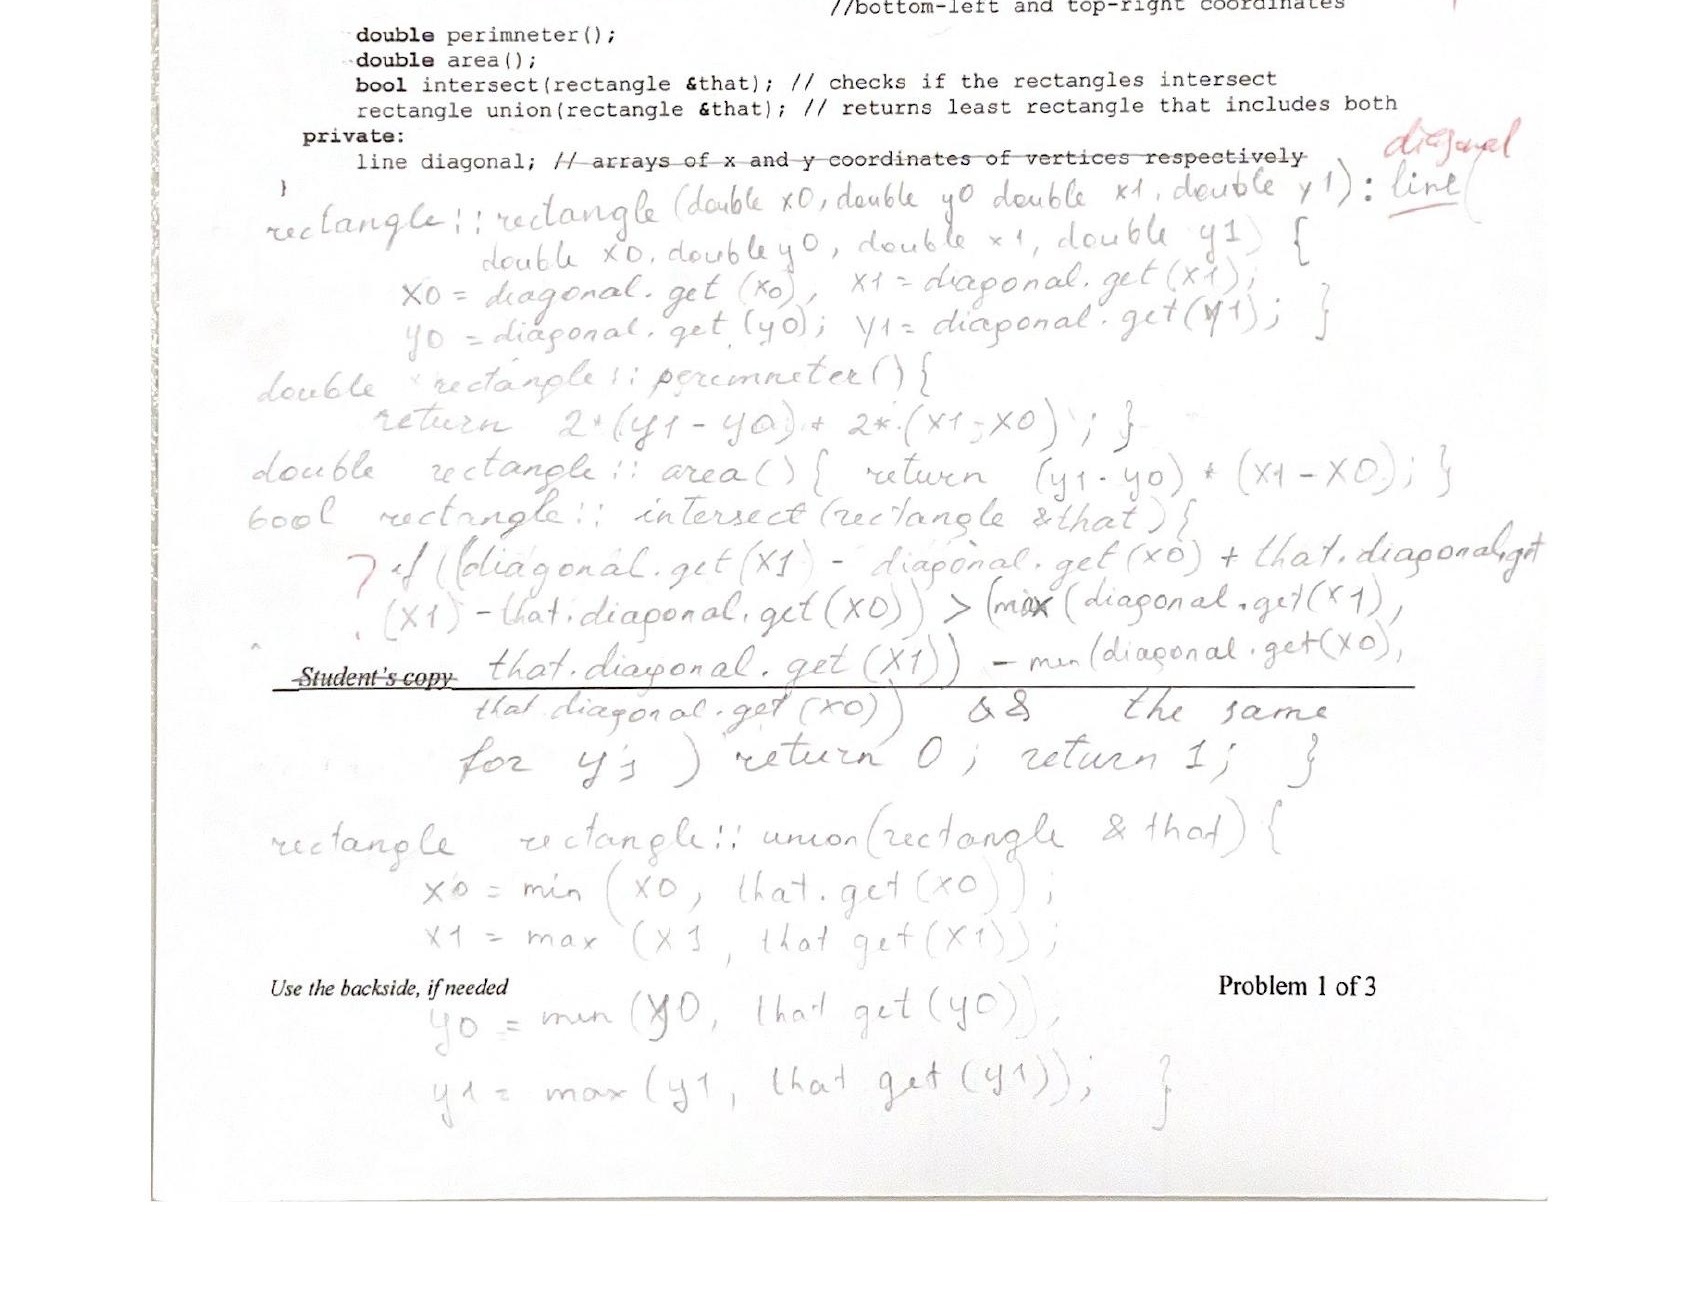 //bottom-left and top-right coordinates
double perimneter();
double area();
bool intersect(rectangle &that); // checks if the rectangles intersect
rectangle union(rectangle &that); // returns least rectangle that includes both
private:
line diagonal; // arrays of x and y coordinates of vertices respectively
}
diagonal
rectangle::rectangle (double x0, double y0 double x1, double y1): line(
double x0, double y0, double x1, double y1) {
x0 = diagonal.get (x0), x1 = diagonal.get(x1);
y0 = diagonal.get (y0); y1 = diagonal.get(y1); }
double rectangle:: perimneter() {
return 2*(y1 - y0) + 2*(x1 - x0); }
double rectangle:: area() { return (y1 - y0) * (x1 - x0); }
bool rectangle:: intersect (rectangle &that) {
? if ((diagonal.get(x1) - diagonal.get(x0) + that.diagonal.get
(x1) - that.diagonal.get(x0)) > (max(diagonal.get(x1),
that.diagonal.get(x1)) - min(diagonal.get(x0),
Student's copy
that.diagonal.get(x0)) && the same
for y's ) return 0; return 1; }
rectangle rectangle:: union(rectangle & that) {
x0 = min (x0, that.get(x0));
x1 = max (x1, that get(x1));
Use the backside, if needed Problem 1 of 3
y0 = min (y0, that get (y0));
y1 = max(y1, that get (y1)); }